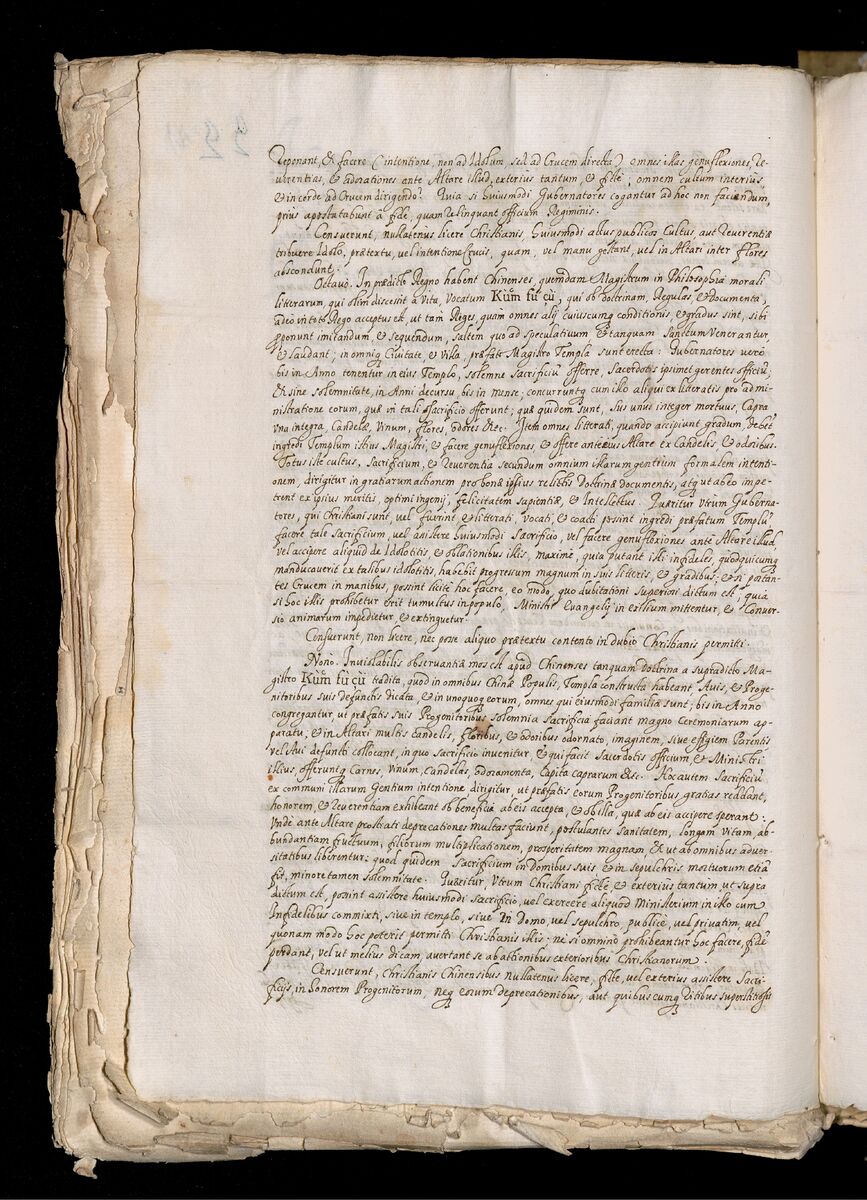 reponant, & facere (intentione, non ad Idolum sed ad Crucem directa) omnes illas genuflexiones, Re-
uerentias, & adorationes ante Altare illud, exterius tantum, & fictè; omnem cultum interius
& in corde ad Crucem dirigendo? Quia si huiusmodi Gubernatores cogantur ad hoc non faciendum,
prius apostatabunt â fide, quam relinquant officium Regiminis.
Censuerunt, nullatenus licere Christianis, huiusmodi actus publicos Cultus, aut Reuerentiæ
tribuere Idolo, prætextu, vel intentione Crucis, quam, vel manu gestant, vel in Altari inter flores
abscondunt.
Octauò. In prædicto Regno habent Chinenses, quemdam Magistrum in Philosophia morali
litterarum, qui olim discessit â vita, vocatum Kum̃ fu çu, qui ob doctrinam, Regulas, & documenta,
adeo in toto Regno acceptus est, ut tam Reges, quam omnes alij cuiuscumq conditionis, & gradus sint, sibi
proponunt imitandum, & sequendum, saltem quo ad speculatiuum & tanquam sanctum Venerantur,
& laudant; in omniq Ciuitate, & Villa, præfato Magistro Templa sunt erecta: Gubernatores verò
bis in Anno tenentur in eius Templo, solemne Sacrificiũ offerre, Sacerdotis ipsimet gerentes officiũ;
& sine solemnitate, in Anni decursu, bis in mense; concurruntq cum illo aliqui ex litteratis pro admi-
nistratione eorum, quæ in tali sacrificio offerunt; quæ quidem sunt, Sus unus integer mortuus, Capra
vna integra, Candelæ, Vinum, flores, odores &ec. Item omnes litterati, quando accipiunt gradum, debẽt
ingredi Templum istius Magistri, & facere genuflexiones, & offere ante eius Altare ex Candelis & odoribus.
Totus iste cultus, Sacrificium, & Reuerentia secundum omnium illarum gentium formalem intenti-
onem, dirigitur in gratiarum actionem pro bonis ipsius relictis Doctrinæ documentis, atq ut ab eo impe-
trent ex ipsius meritis, optimi ingenij, felicitatem sapientiæ, & Intellectus. Quæritur vtrum Guberna-
tores, qui Christiani sunt, vel fuerint, & litterati, vocati, & coacti possint ingredi præfatum Templũ
facere tale Sacrificium, vel assistere huiusmodi Sacrificio, vel facere genuflexiones ante Altare illud,
vel accipere aliquid de Idolotitis, & oblationibus illis, maxime, quia putant illi infideles, quodquicumq
manducauerit ex talibus idolotitis, habebit progressum magnum in suis litteris, & gradibus; & si portan-
tes Crucem in manibus, possint licitè hoc facere, eo modo, quo dubitationi Superiori dictum est, quia
si hoc illis prohibetur erit tumultus in populo, Ministri Euangelij in exilium mittentur, & Conuer-
sio animarum impedietur, & extinguetur.
Censuerunt, non licere, nec posse aliquo prætextu contento in dubio Christianis permitti.
Nonò. Inuiolabilis obseruantiæ mos est apud Chinenses tanquam Doctrina a supradicto Ma-
gistro Kum̃ fu çu tradita, quod in omnibus Chinæ Populis, Templa constructa habeant Auis, & Proge-
nitoribus suis defunctis dicata, & in unoquoq eorum, omnes qui eiusmodi familiæ sunt; bis in Anno
congregantur, ut præfatis suis Progenitoribus solemnia sacrificia faciant magno Ceremoniarum ap-
paratu, & in Altari multis candelis, floribus, & odoribus odornato, imaginem, siue effigiem Parentis
vel Aui defuncti collocant, in quo sacrificio inuenitur, & qui facit Sacerdotis officium, & Ministri
illius, offeruntq Carnes, Vinum, Candelas, odoramenta, Capita caprarum &c. Hoc autem Sacrificiũ
ex communi illarum Gentium intentione dirigitur, ut præfatis eorum Progenitoribus gratias reddant,
honorem, & Reuerentiam exhibeant ob beneficia ab eis accepta, & ob illa, quæ ab eis accipere sperant:
Vnde ante Altare prostrati deprecationes multas faciunt, postulantes sanitatem, longam vitam, ab-
bundantiam fructuum, filiorum multiplicationem, prosperitatem magnam, & ut ab omnibus aduer-
sitatibus liberentur: quod quidem Sacrificium in Domibus suis, & in sepulchris mortuorum etiã
fit, minore tamen solemnitate. Quæritur, Vtrum Christiani fictè, & exterius tantum ut supra
dictum est, possint assistere huiusmodi Sacrificio, vel exercere aliquod Ministerium in illo cum
Infidelibus commixti, siue in templo, siue in Domo, vel sepulchro, publicè, vel priuatim, vel
quonam modo hoc poterit permitti Christianis illis: ne si omninò prohibeantur hoc facere, fidẽ
perdant, vel ut melius dicam, auertant se ab actionibus exterioribus Christianorum.
Censuerunt, Christianis Chinensibus nullatenus licere, fictè, vel exterius assistere Sacri-
ficijs, in honorem Progenitorum, neq eorum deprecationibus, aut quibuscumq ritibus superstitiosis